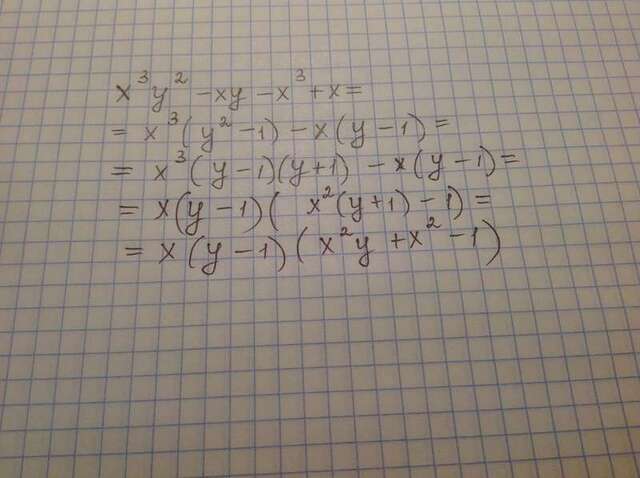 x³y² - xy - x³ + x =
= x³(y² - 1) - x(y - 1) =
= x³(y - 1)(y + 1) - x(y - 1) =
= x(y - 1)( x²(y + 1) - 1) =
= x(y - 1)(x²y + x² - 1)